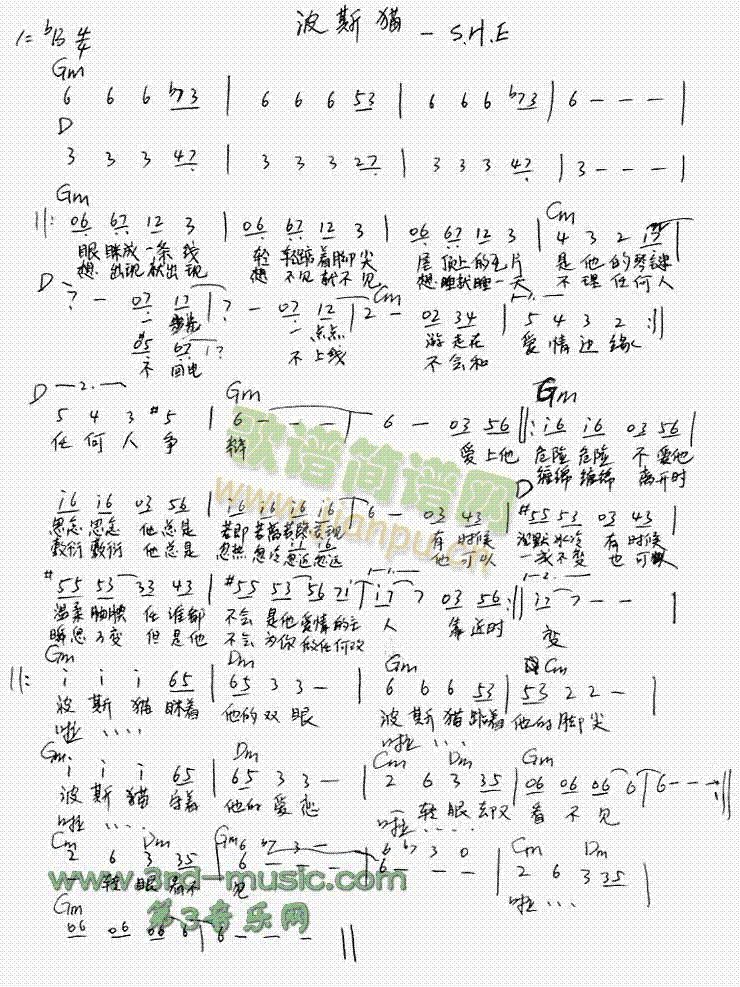 波斯猫 — S.H.E
1=ᵇB 4/4
Gm
6 6 6 ᵇ73 | 6 6 6 53 | 6 6 6 ᵇ73 | 6 - - - |
D
3 3 3 47 | 3 3 3 27 | 3 3 3 47 | 3 - - - |
Gm Cm
||: 06 67 12 3 | 06 67 12 3 | 06 67 12 3 | 4 3 2 |
眼眯成一条线 轻轻踮着脚尖 屋顶上的瓦片 是他的琴键
想出现就出现 想不见就不见 想睡就睡一天 不理任何人
D Cm
7 - 07 17 | 7 - 07 12 | 2 - 02 34 | 5 4 3 2 :||
一 一点点 游走在 爱情边缘
#5 67 1 7
不回电 不上线 不会和
D Gm Gm
5 4 3 #5 | 6 - - - | 6 - 03 56 ||: i6 i6 03 56 |
任何人争 辩 爱上他 危险危险 不爱他
缠绵缠绵 离开时
D
i6 i6 03 56 | i6 i6 i6 i6 | 6 - 03 43 | #55 53 03 43 |
思念思念 他总是 若即若离若隐若现 有时候 沉默冰冷 有时候
敷衍敷衍 他总是 忽热忽冷忽近忽远 他可以 一成不变 也可以
#55 53 33 43 | #55 53 56 71 | 17 7 03 56 :|| 17 7 - - |
温柔腼腆 任谁都 不会是他爱情的主 人 靠近时 变
瞬息万变 但是他 不会为你做任何改
Gm Dm Gm Cm
||: i i i 65 | 65 3 3 - | 6 6 6 53 | 53 2 2 - |
波斯猫眯着 他的双眼 波斯猫踮着 他的脚尖
啦 .... 啦 ....
Gm Dm Cm Dm Gm
i i i 65 | 65 3 3 - | 2 6 3 35 | 06 06 06 6 | 6 - - - :||
波斯猫守着 他的爱恋 一转眼却又 看不见
啦 .... 啦 ....
Cm Dm Gm Cm Dm
2 6 3 35 | 6 - - - | 6 - - - | 2 6 3 35 |
6 ᵇ7 3 - 6 ᵇ7 3 0
一转眼看不 见 啦 ....
Gm
06 06 06 6 | 6 - - - ||
歌谱简谱网
www.jianpu.cn
www.3rd-music.com
第3音乐网